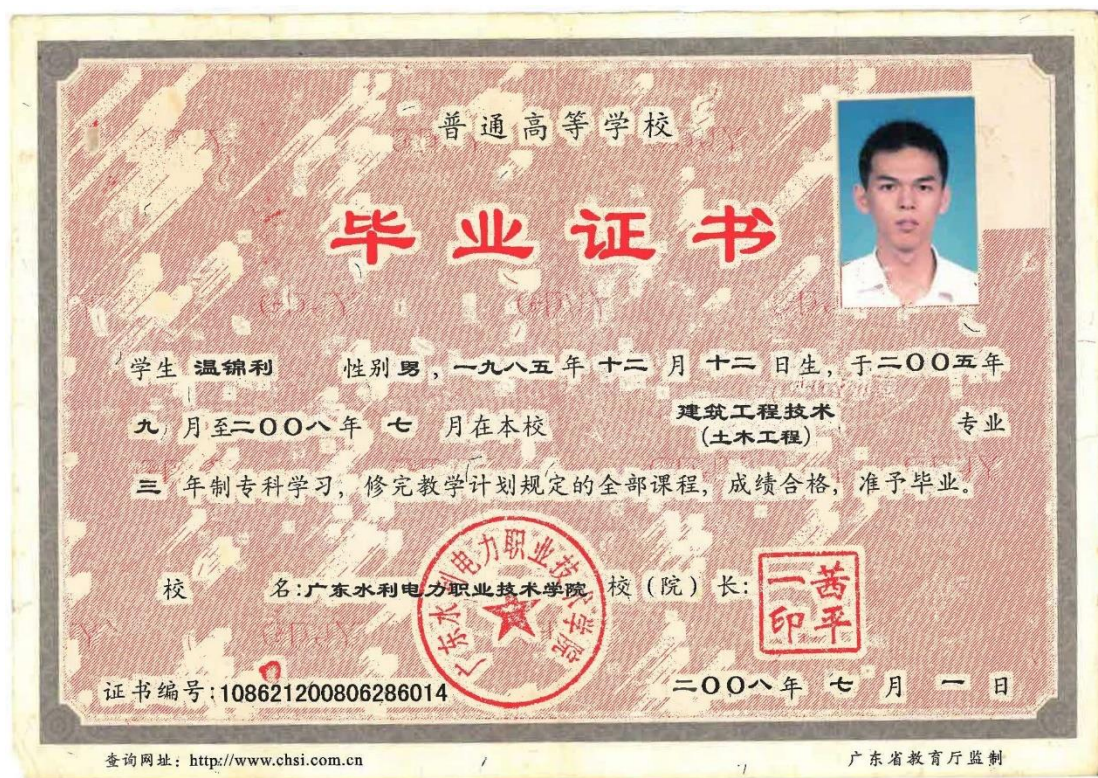 普通高等学校
毕业证书
学生 温锦利 性别 男，一九八五年 十二 月 十二 日生，于二〇〇五年
九 月至二〇〇八年 七 月在本校 建筑工程技术 专业
(土木工程)
三 年制专科学习，修完教学计划规定的全部课程，成绩合格，准予毕业。
校 名:广东水利电力职业技术学院 校(院)长:
广东水利电力职业技术学院
一茜
印平
证书编号:108621200806286014
二〇〇八年 七 月 一 日
查询网址: http://www.chsi.com.cn
广东省教育厅监制